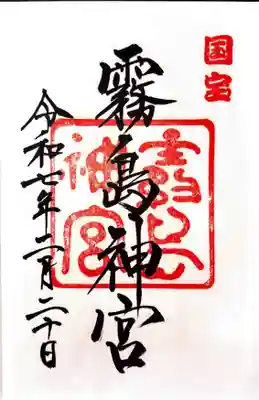 国宝
霧島神宮
霧島神宮
令和七年二月二十日